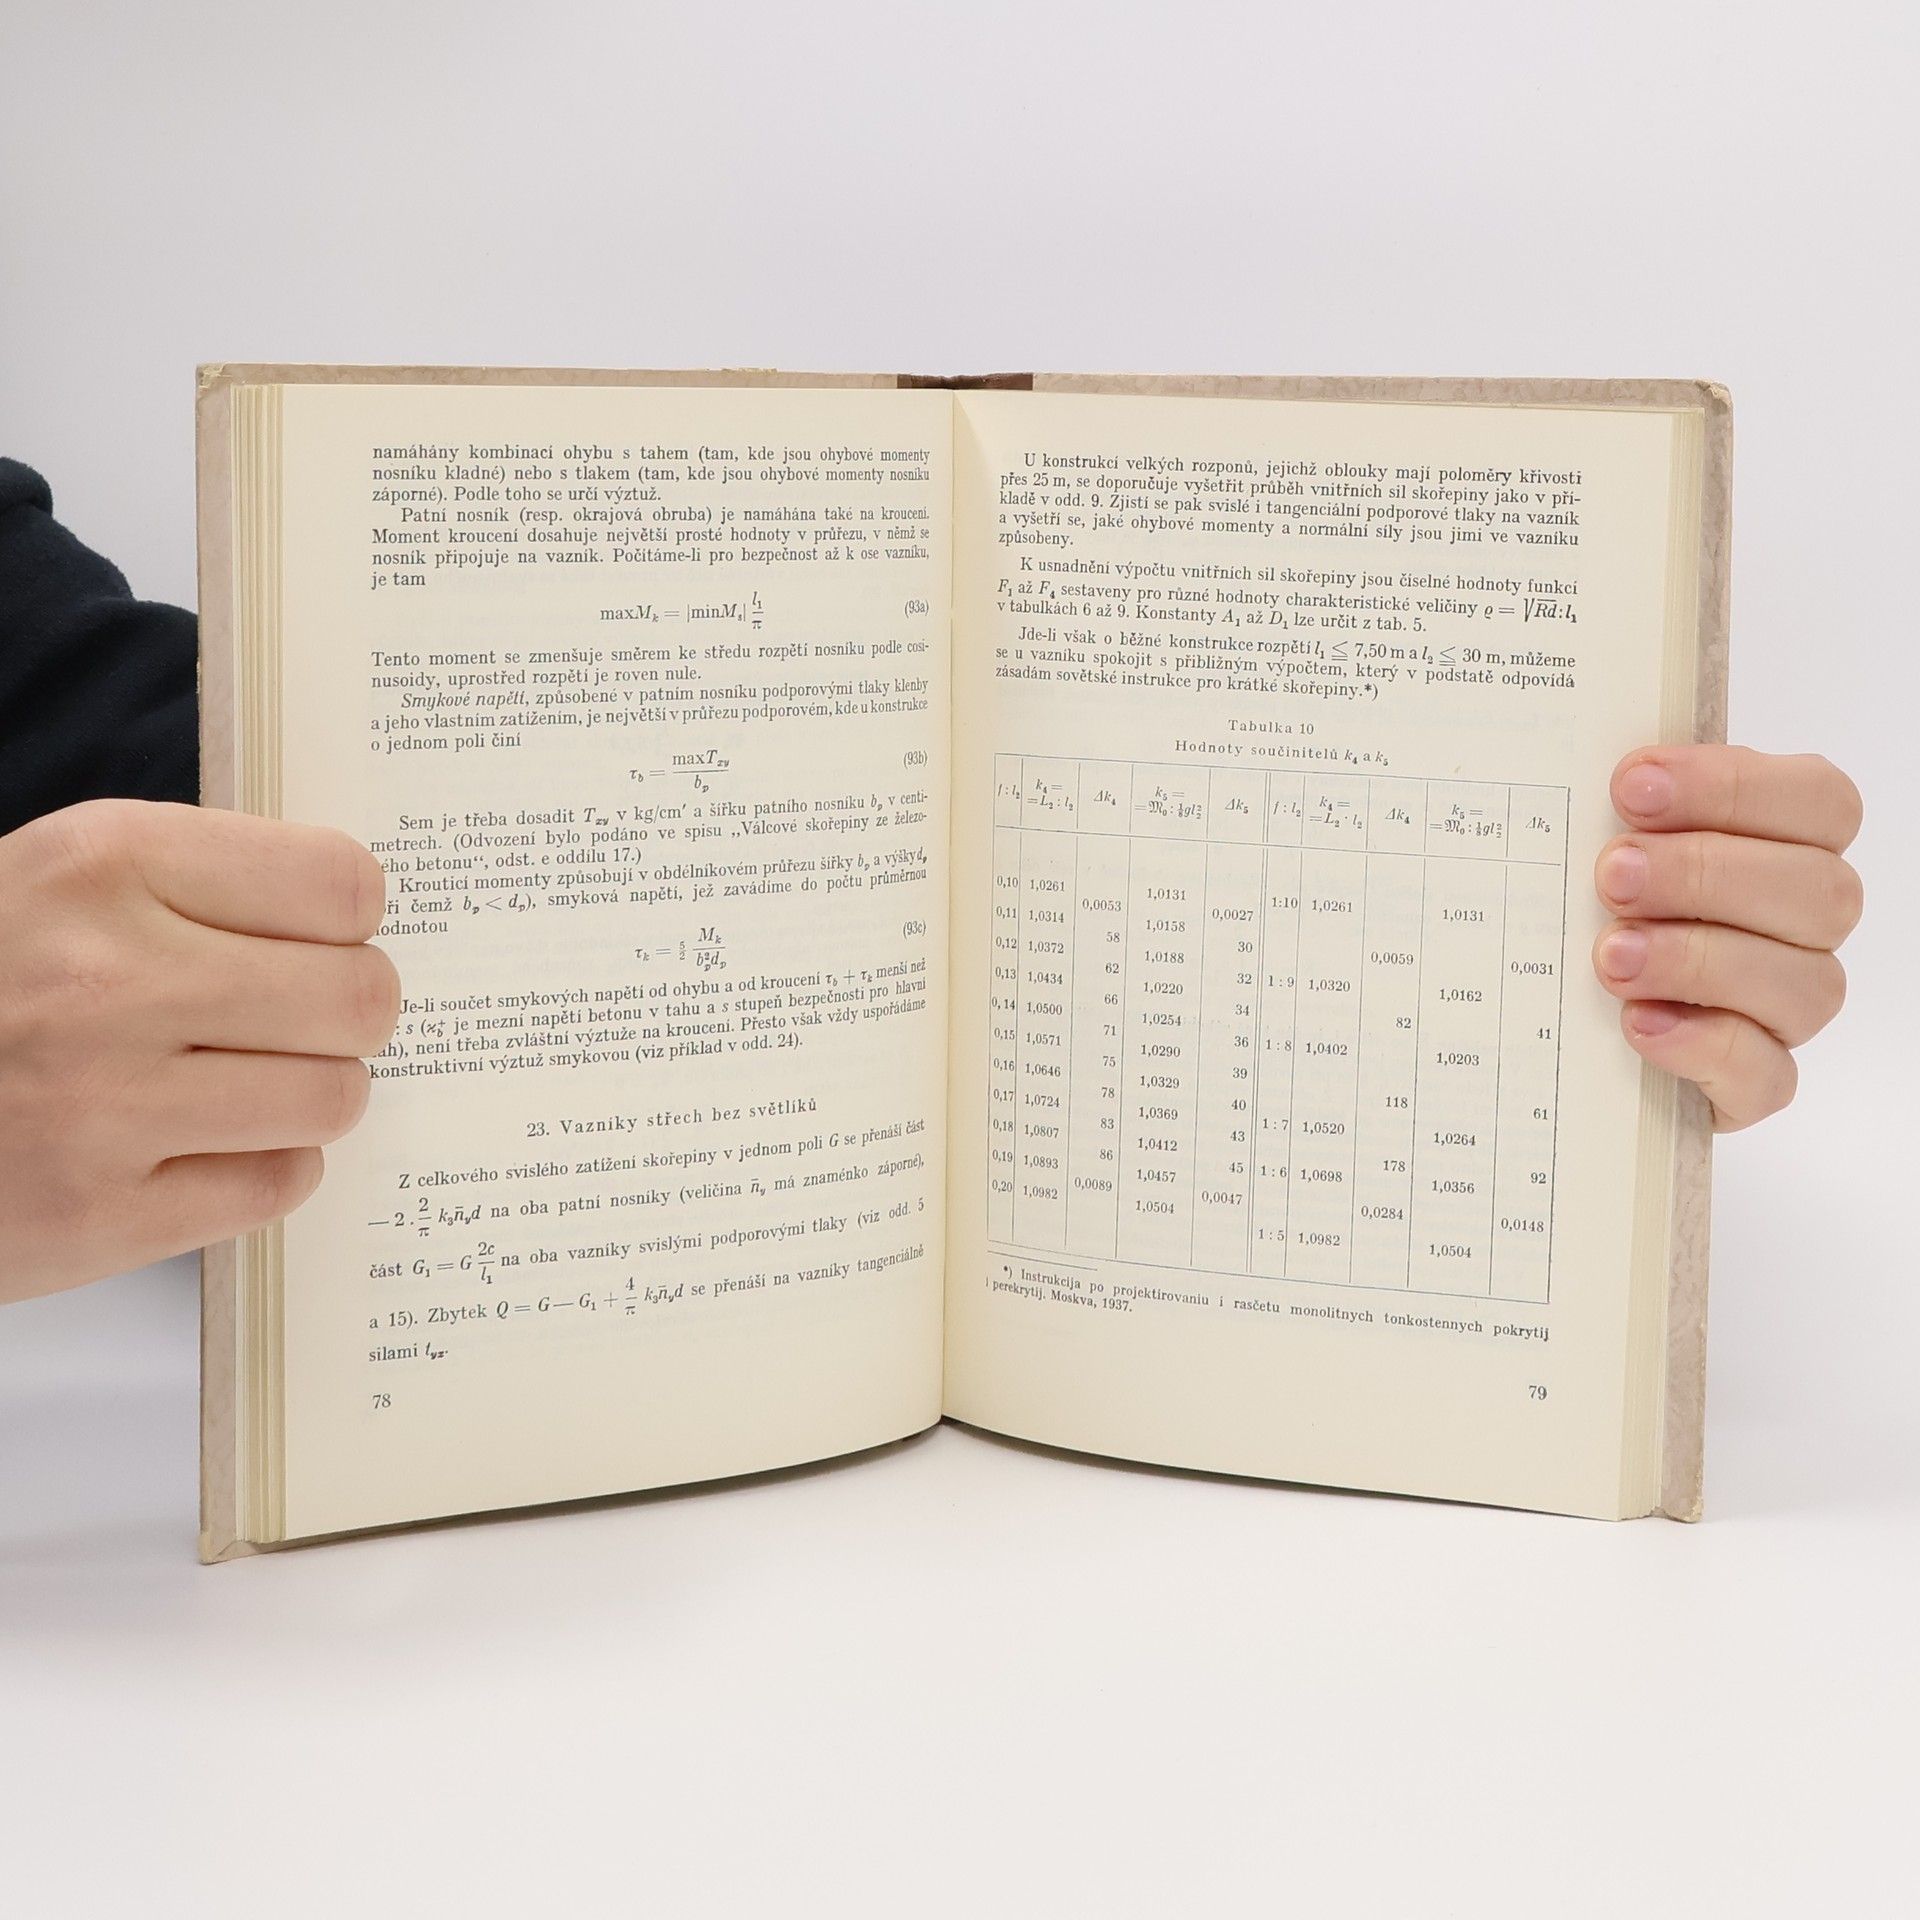 namáhány kombinací ohybu s tahem (tam, kde jsou ohybové momenty
nosníku kladné) nebo s tlakem (tam, kde jsou ohybové momenty nosníku
záporné). Podle toho se určí výztuž.
Patní nosník (resp. okrajová obruba) je namáhána také na kroucení.
Moment kroucení dosahuje největší prosté hodnoty v průřezu, v němž se
nosník připojuje na vazník. Počítáme-li pro bezpečnost až k ose vazníku,
je tam
maxMₖ = |minMₛ| l₁/π (93a)
Tento moment se zmenšuje směrem ke středu rozpětí nosníku podle cosi-
nusoidy, uprostřed rozpětí je roven nule.
Smykové napětí, způsobené v patním nosníku podporovými tlaky klenby
a jeho vlastním zatížením, je největší v průřezu podporovém, kde u konstrukce
o jednom poli činí
τ_b = maxT_xy / b_p (93b)
Sem je třeba dosadit T_xy v kg/cm′ a šířku patního nosníku b_p v centi-
metrech. (Odvození bylo podáno ve spisu „Válcové skořepiny ze železo-
ého betonu“, odst. e oddílu 17.)
Krouticí momenty způsobují v obdélníkovém průřezu šířky b_p a výšky d_p
ři čemž b_p < d_p), smyková napětí, jež zavádíme do počtu průměrnou
odnotou
τₖ = 5/2 Mₖ / b_p²d_p (93c)
Je-li součet smykových napětí od ohybu a od kroucení τ_b + τₖ menší než
: s (ϰ_b⁺ je mezní napětí betonu v tahu a s stupeň bezpečnosti pro hlavní
ah), není třeba zvláštní výztuže na kroucení. Přesto však vždy uspořádáme
konstruktivní výztuž smykovou (viz příklad v odd. 24).
23. Vazníky střech bez světlíků
Z celkového svislého zatížení skořepiny v jednom poli G se přenáší část
— 2 . 2/π k₃n̄_y d na oba patní nosníky (veličina n̄_y má znaménko záporné),
část G₁ = G 2c/l₁ na oba vazníky svislými podporovými tlaky (viz odd. 5
a 15). Zbytek Q = G — G₁ + 4/π k₃n̄_y d se přenáší na vazníky tangenciálně
silami t_yx.
78
U konstrukcí velkých rozponů, jejichž oblouky mají poloměry křivosti
přes 25 m, se doporučuje vyšetřit průběh vnitřních sil skořepiny jako v pří-
kladě v odd. 9. Zjistí se pak svislé i tangenciální podporové tlaky na vazník
a vyšetří se, jaké ohybové momenty a normální síly jsou jimi ve vazníku
způsobeny.
K usnadnění výpočtu vnitřních sil skořepiny jsou číselné hodnoty funkcí
F₁ až F₄ sestaveny pro různé hodnoty charakteristické veličiny ϱ = √Rd : l₁
v tabulkách 6 až 9. Konstanty A₁ až D₁ lze určit z tab. 5.
Jde-li však o běžné konstrukce rozpětí l₁ ≦ 7,50 m a l₂ ≦ 30 m, můžeme
se u vazníku spokojit s přibližným výpočtem, který v podstatě odpovídá
zásadám sovětské instrukce pro krátké skořepiny.*)
Tabulka 10
Hodnoty součinitelů k₄ a k₅
f : l₂ k₄ = =L₂ : l₂ Δk₄ k₅ = =𝔐₀ : ⅛gl₂² Δk₅ f : l₂ k₄ = =L₂ · l₂ Δk₄ k₅ = =𝔐₀ : ⅛gl₂² Δk₅
0,10 1,0261 1,0131 1:10 1,0261 1,0131
0,0053 0,0027
0,11 1,0314 1,0158
58 30 0,0059 0,0031
0,12 1,0372 1,0188
62 32 1 : 9 1,0320 1,0162
0,13 1,0434 1,0220
66 34 82 41
0,14 1,0500 1,0254
71 36 1 : 8 1,0402 1,0203
0,15 1,0571 1,0290
75 39 118 61
0,16 1,0646 1,0329
78 40 1 : 7 1,0520 1,0264
0,17 1,0724 1,0369
83 43 178 92
0,18 1,0807 1,0412
86 45 1 : 6 1,0698 1,0356
0,19 1,0893 1,0457
0,0089 0,0047 0,0284 0,0148
0,20 1,0982 1,0504 1 : 5 1,0982 1,0504
*) Instrukcija po projektirovaniu i rasčetu monolitnych tonkostennych pokrytij
i perekrytij. Moskva, 1937.
79